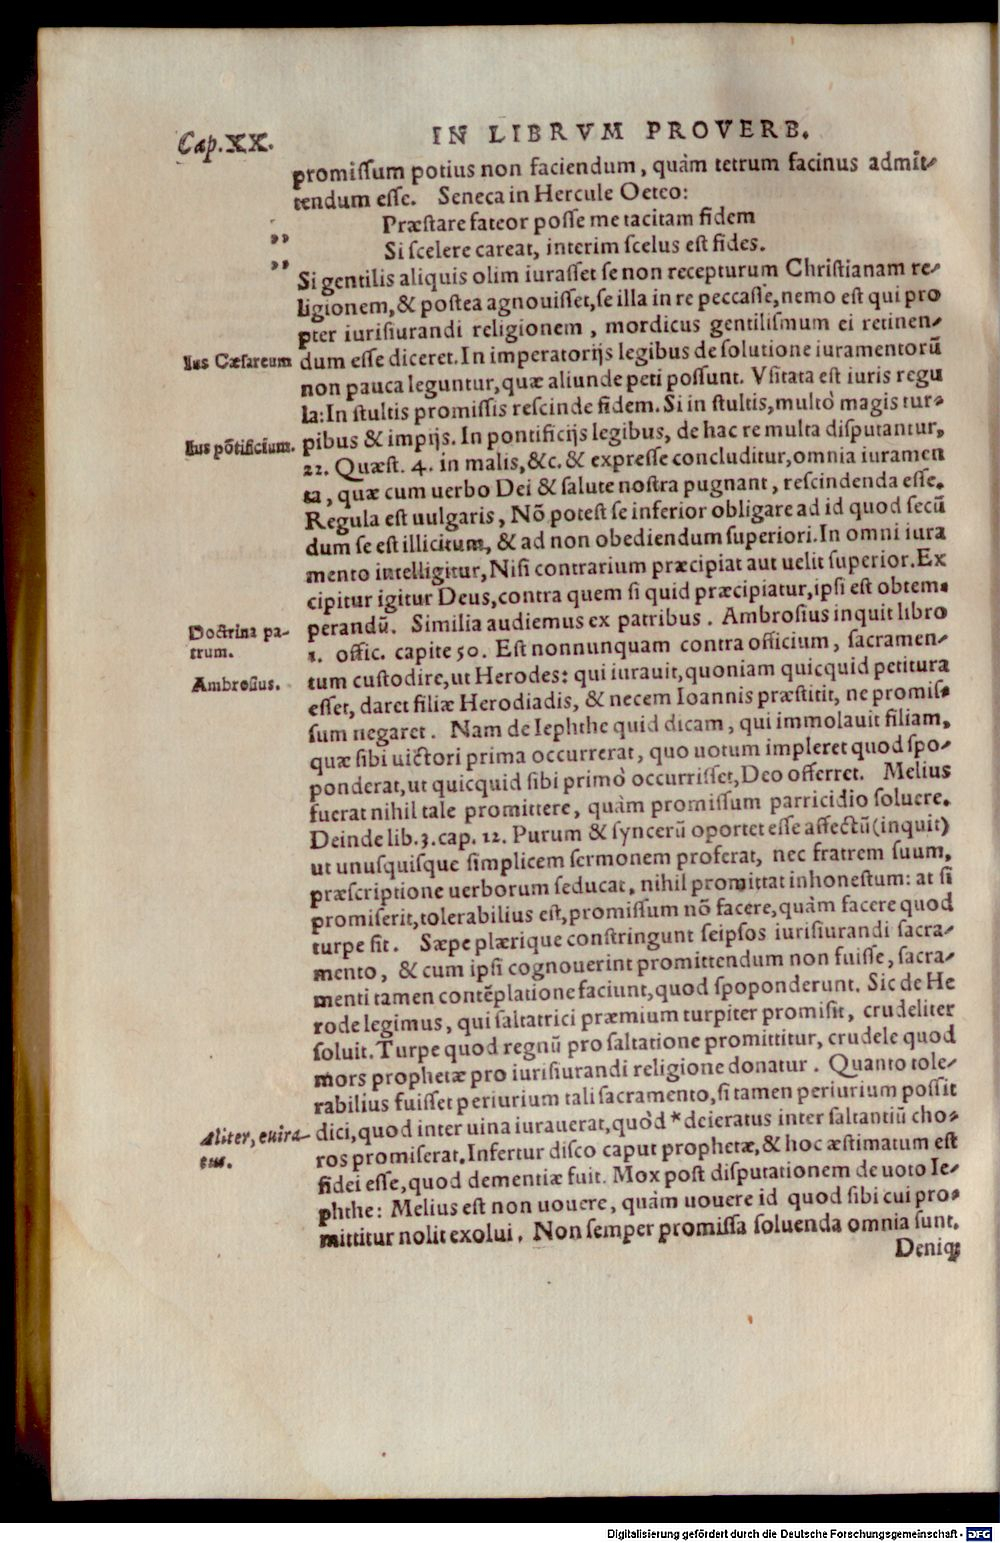 Cap.XX.
IN LIBRVM PROVERB.
promiſſum potius non faciendum, quàm tetrum facinus admit-
tendum eſſe. Seneca in Hercule Oeteo:
Præſtare fateor poſſe me tacitam fidem
„
Si ſcelere careat, interim ſcelus eſt fides.
„
Si gentilis aliquis olim iuraſſet ſe non recepturum Chriſtianam re-
ligionem, & poſtea agnouiſſet, ſe illa in re peccaſſe, nemo eſt qui pro
pter iuriſiurandi religionem, mordicus gentiliſmum ei retinen-
Ius Cæſareum
dum eſſe diceret. In imperatorijs legibus de ſolutione iuramentorū
non pauca leguntur, quæ aliunde peti poſſunt. Vſitata eſt iuris regu
la: In ſtultis promiſſis reſcinde fidem. Si in ſtultis, multò magis tur-
Ius põtificium.
pibus & impijs. In pontificijs legibus, de hac re multa diſputantur,
22. Quæſt. 4. in malis, &c. & expreſſe concluditur, omnia iuramen
ta, quæ cum uerbo Dei & ſalute noſtra pugnant, reſcindenda eſſe.
Regula eſt uulgaris, Nõ poteſt ſe inferior obligare ad id quod ſecũ
dum ſe eſt illicitum, & ad non obediendum ſuperiori. In omni iura
mento intelligitur, Niſi contrarium præcipiat aut uelit ſuperior. Ex
cipitur igitur Deus, contra quem ſi quid præcipiatur, ipſi eſt obtem-
Doctrina pa-
trum.
perandũ. Similia audiemus ex patribus. Ambroſius inquit libro
1. offic. capite 50. Eſt nonnunquam contra officium, ſacramen-
Ambroſius.
tum cuſtodire, ut Herodes: qui iurauit, quoniam quicquid petitura
eſſet, daret filiæ Herodiadis, & necem Ioannis præſtitit, ne promiſ-
ſum negaret. Nam de Iephthe quid dicam, qui immolauit filiam,
quæ ſibi uictori prima occurrerat, quo uotum impleret quod ſpo-
ponderat, ut quicquid ſibi primò occurriſſet, Deo offerret. Melius
fuerat nihil tale promittere, quàm promiſſum parricidio ſoluere.
Deinde lib. 3. cap. 12. Purum & ſyncerũ oportet eſſe affectũ (inquit)
ut unuſquiſque ſimplicem ſermonem proferat, nec fratrem ſuum,
præſcriptione uerborum ſeducat, nihil promittat inhoneſtum: at ſi
promiſerit, tolerabilius eſt, promiſſum nõ facere, quàm facere quod
turpe ſit. Sæpe plærique conſtringunt ſeipſos iuriſiurandi ſacra-
mento, & cum ipſi cognouerint promittendum non fuiſſe, ſacra-
menti tamen contẽplatione faciunt, quod ſpoponderunt. Sic de He
rode legimus, qui ſaltatrici præmium turpiter promiſit, crudeliter
ſoluit. Turpe quod regnũ pro ſaltatione promittitur, crudele quod
mors prophetæ pro iuriſiurandi religione donatur. Quanto tole-
rabilius fuiſſet periurium tali ſacramento, ſi tamen periurium poſſit
Aliter, euira-
tus.
dici, quod inter uina iurauerat, quòd * deieratus inter ſaltantiũ cho-
ros promiſerat. Infertur diſco caput prophetæ, & hoc æſtimatum eſt
fidei eſſe, quod dementiæ fuit. Mox poſt diſputationem de uoto Ie-
phthe: Melius eſt non uouere, quàm uouere id quod ſibi cui pro-
mittitur nolit exolui. Non ſemper promiſſa ſoluenda omnia ſunt.
Deniq;
Digitalisierung gefördert durch die Deutsche Forschungsgemeinschaft - DFG